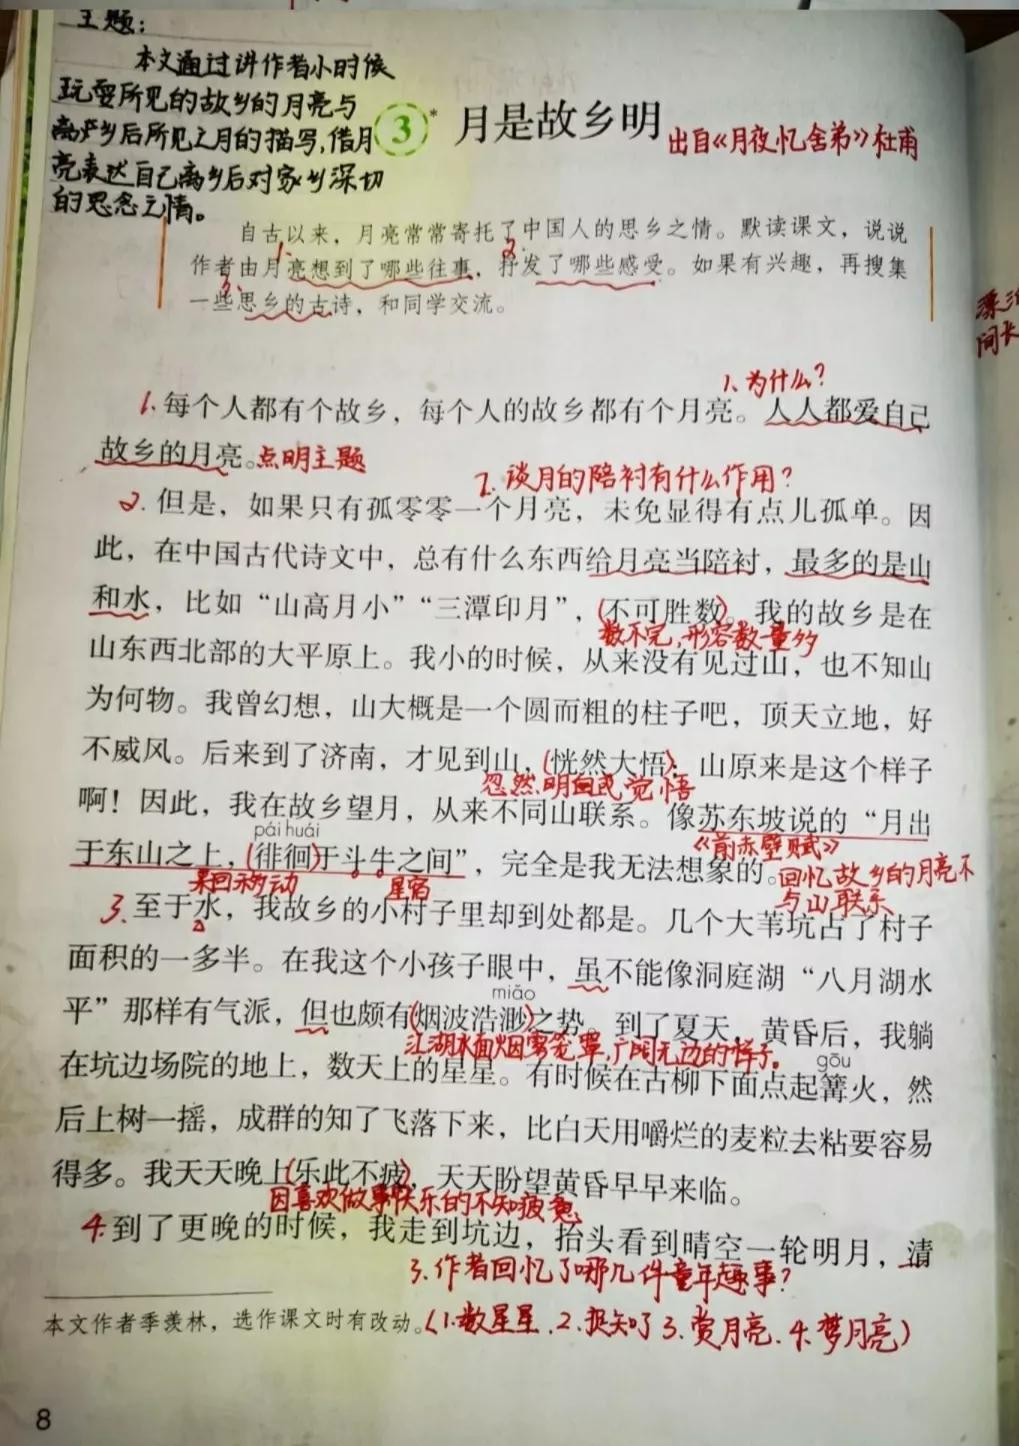 主题：
本文通过讲作者小时候
玩耍所见的故乡的月亮与
离乡后所见之月的描写，借月
亮表达自己离乡后对家乡深切
的思念之情。
3* 月是故乡明
出自《月夜忆舍弟》杜甫
自古以来，月亮常常寄托了中国人的思乡之情。默读课文，说说
1. 2.
作者由月亮想到了哪些往事，抒发了哪些感受。如果有兴趣，再搜集
3.
一些思乡的古诗，和同学交流。
间长
1.为什么？
1.每个人都有个故乡，每个人的故乡都有个月亮。人人都爱自己
故乡的月亮。点明主题
2.谈月的陪衬有什么作用？
2.但是，如果只有孤零零一个月亮，未免显得有点儿孤单。因
此，在中国古代诗文中，总有什么东西给月亮当陪衬，最多的是山
和水，比如“山高月小”“三潭印月”，(不可胜数)。我的故乡是在
数不完，形容数量多
山东西北部的大平原上。我小的时候，从来没有见过山，也不知山
为何物。我曾幻想，山大概是一个圆而粗的柱子吧，顶天立地，好
不威风。后来到了济南，才见到山，(恍然大悟)：山原来是这个样子
忽然明白或觉悟
啊！因此，我在故乡望月，从来不同山联系。像苏东坡说的“月出
pái huái
《前赤壁赋》
于东山之上，(徘徊)于斗牛之间”，完全是我无法想象的。
来回移动 星宿
回忆故乡的月亮不
与山联系
3.至于水，我故乡的小村子里却到处都是。几个大苇坑占了村子
面积的一多半。在我这个小孩子眼中，虽不能像洞庭湖“八月湖水
miǎo
平”那样有气派，但也颇有(烟波浩渺)之势。到了夏天，黄昏后，我躺
江湖水面烟雾笼罩，广阔无边的样子。
在坑边场院的地上，数天上的星星。有时候在古柳下面点起篝火，然
gōu
后上树一摇，成群的知了飞落下来，比白天用嚼烂的麦粒去粘要容易
得多。我天天晚上(乐此不疲)，天天盼望黄昏早早来临。
因喜欢做事快乐的不知疲惫
4.到了更晚的时候，我走到坑边，抬头看到晴空一轮明月，清
3.作者回忆了哪几件童年趣事？
本文作者季羡林，选作课文时有改动。(1.数星星.2.捉知了3.赏月亮.4.梦月亮)
8